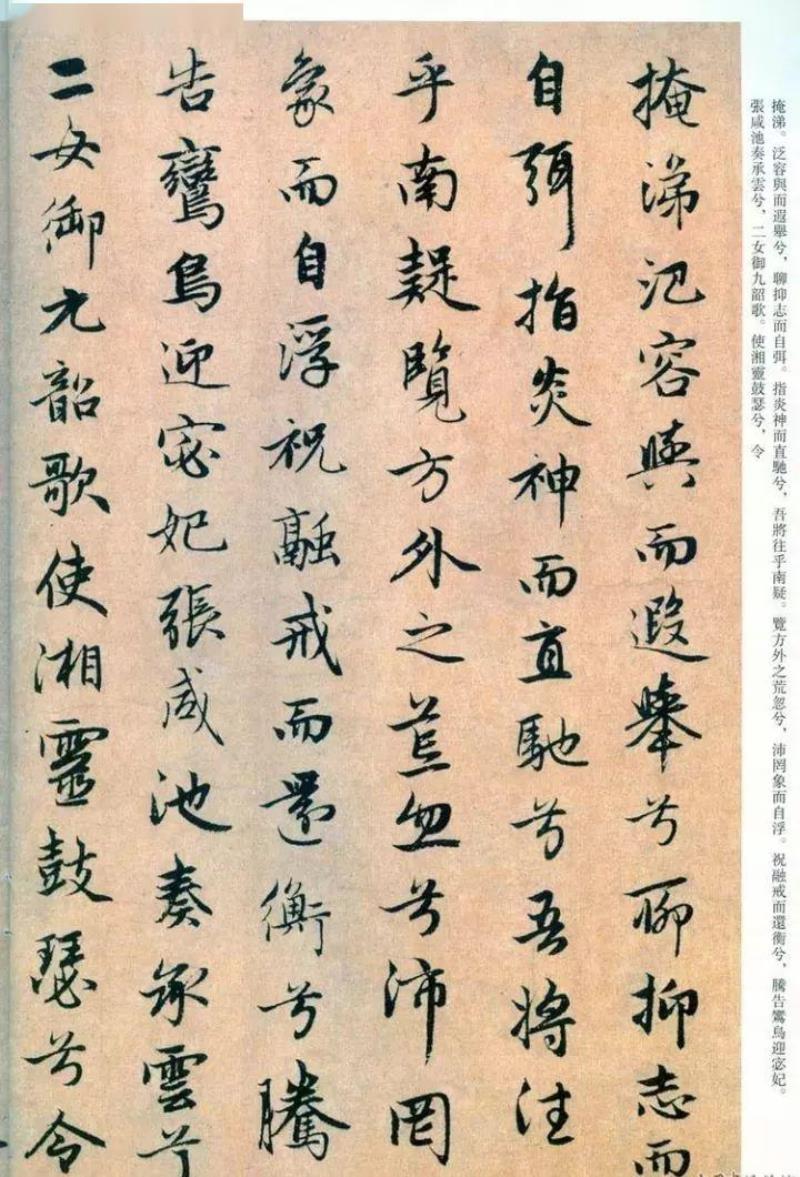 掩涕。泛容與而遐舉兮，聊抑志而自弭。指炎神而直馳兮，吾將往乎南疑。覽方外之荒忽兮，沛罔象而自浮。祝融戒而還衡兮，騰告鸞鳥迎宓妃。
張咸池奏承雲兮，二女御九韶歌。使湘靈鼓瑟兮，令
掩涕汜容與而遐舉兮聊抑志而
自弭指炎神而直馳兮吾將往
乎南疑覽方外之荒忽兮沛罔
象而自浮祝融戒而還衡兮騰
告鸞鳥迎宓妃張咸池奏承雲兮
二女御九韶歌使湘靈鼓瑟兮令